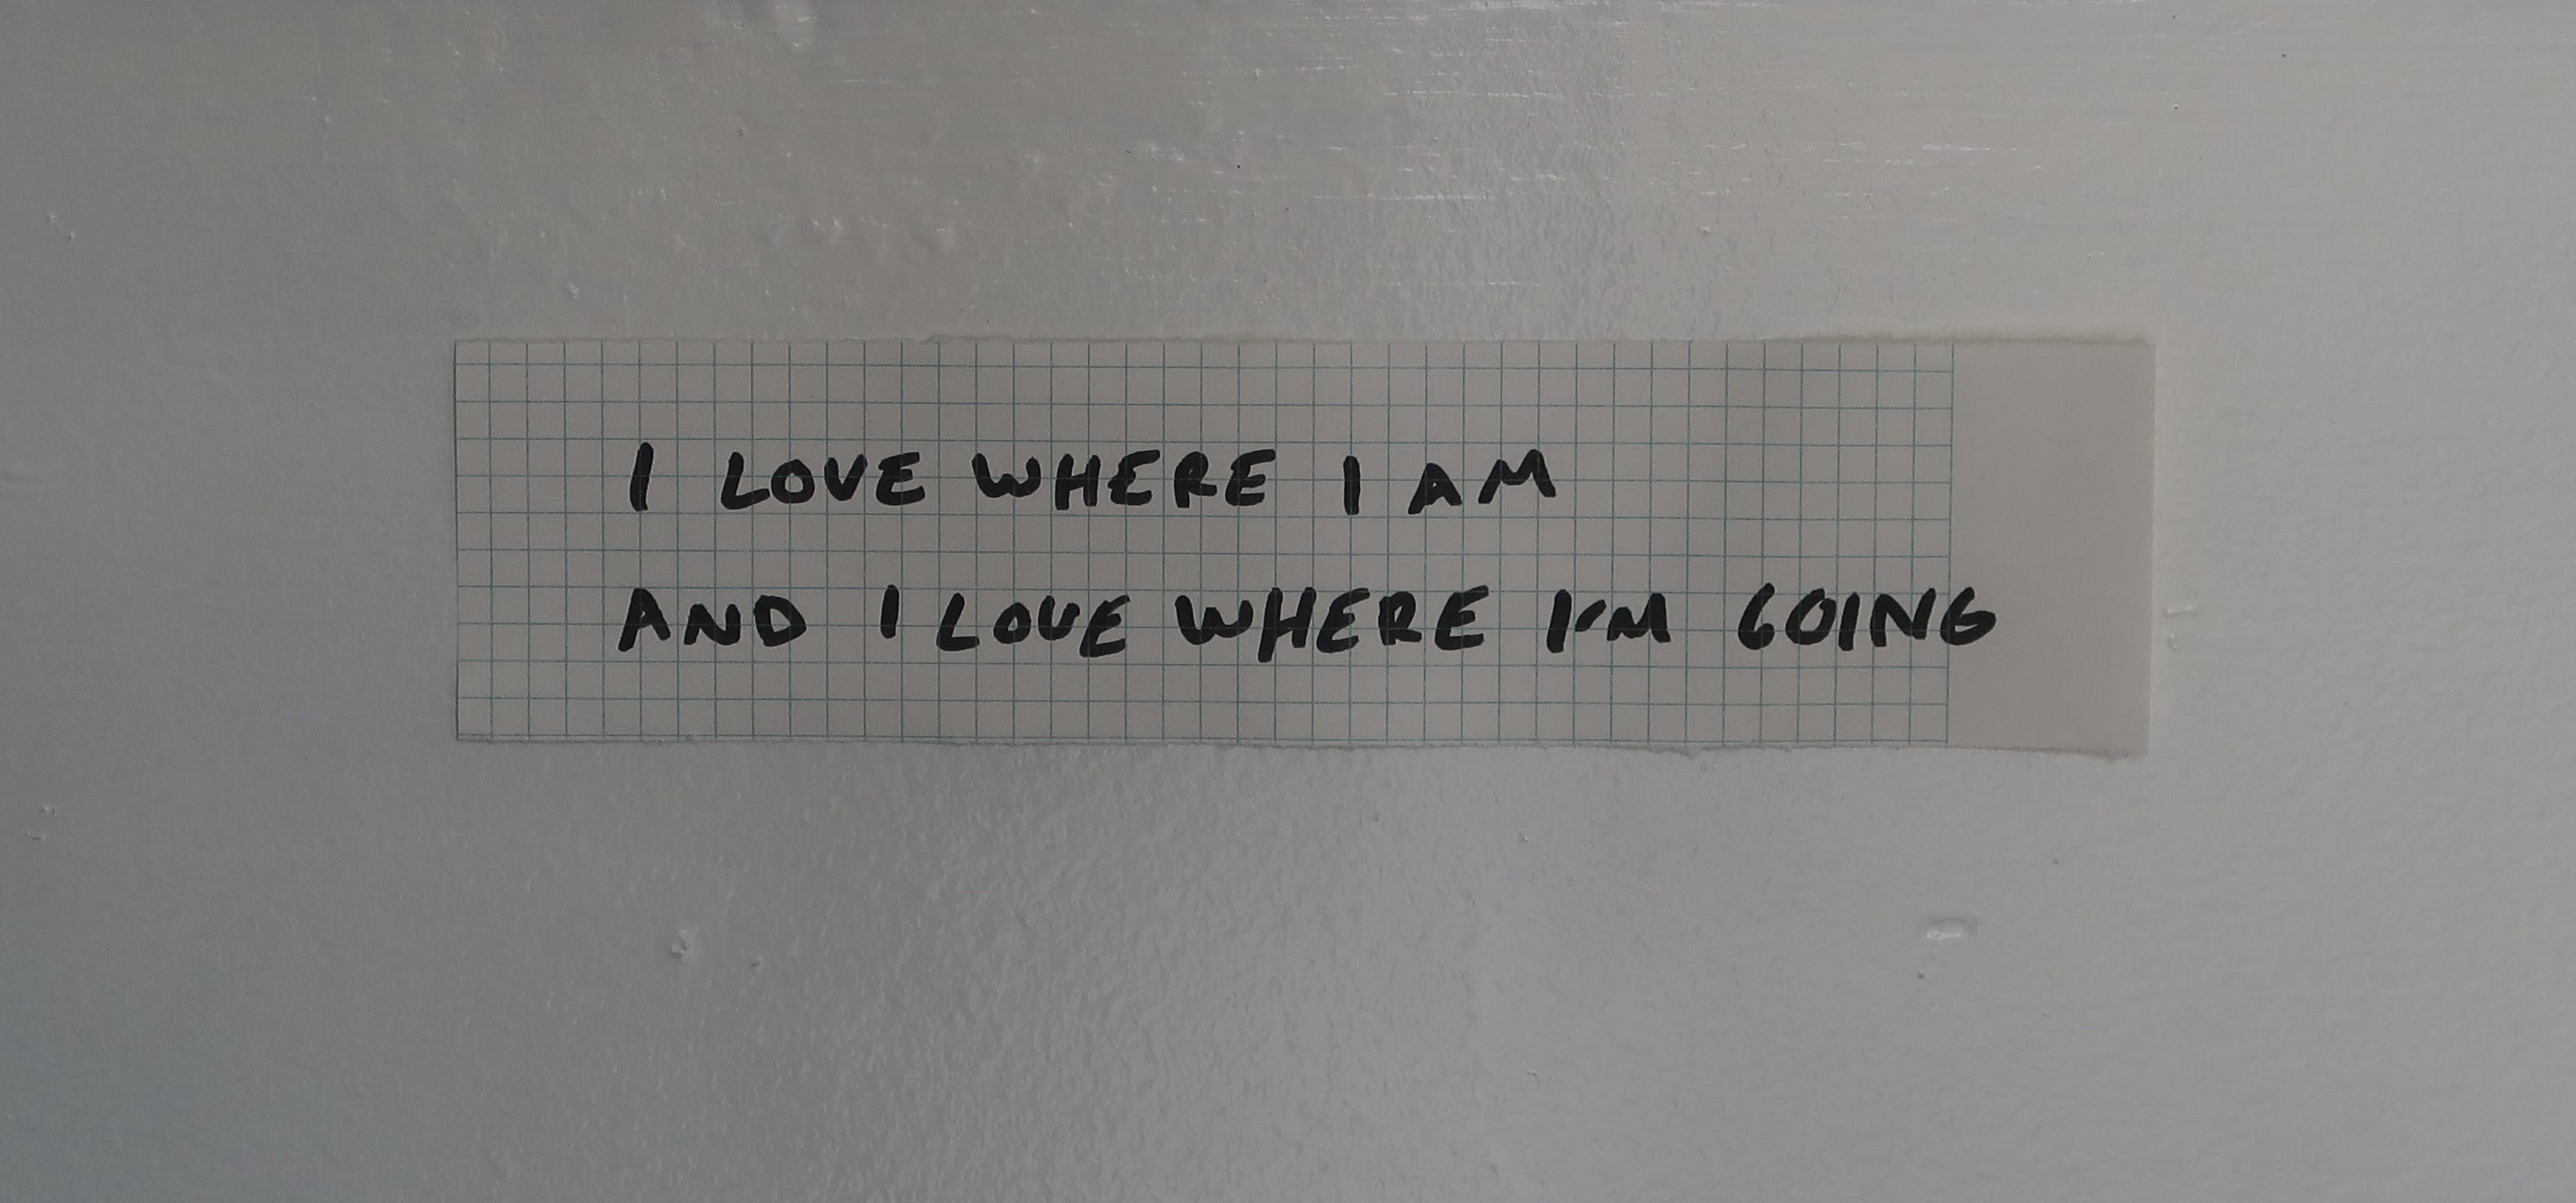 I LOVE WHERE I AM
AND I LOVE WHERE I'M GOING